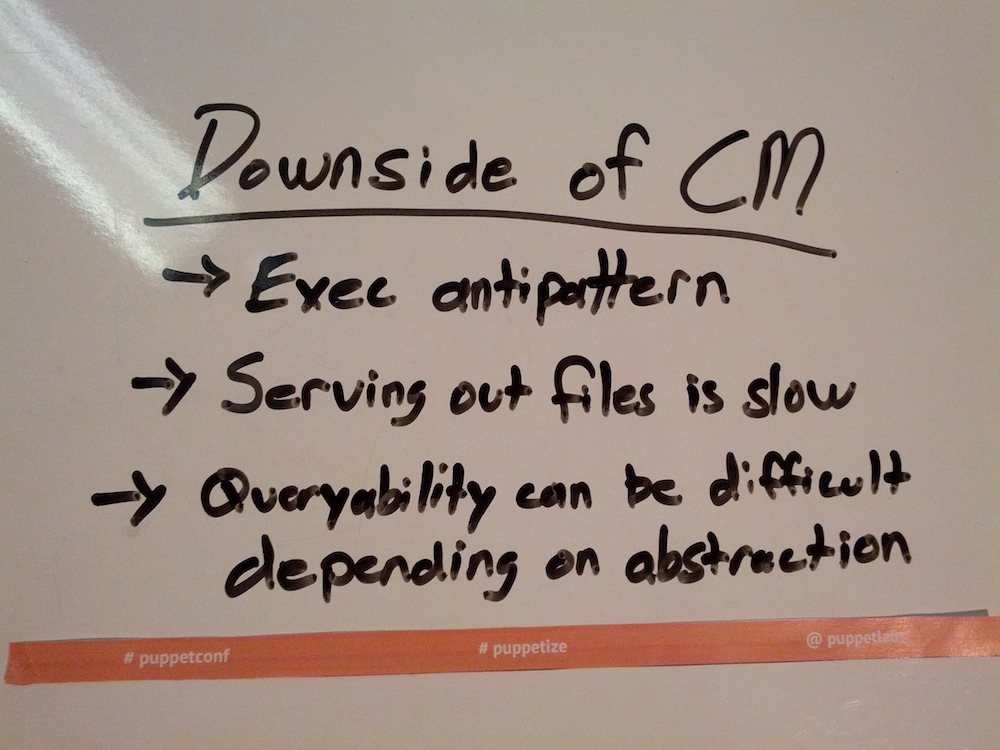 Downside of CM
→ Exec antipattern
→ Serving out files is slow
→ Queryability can be difficult
depending on abstraction
# puppetconf # puppetize @ puppetlabs